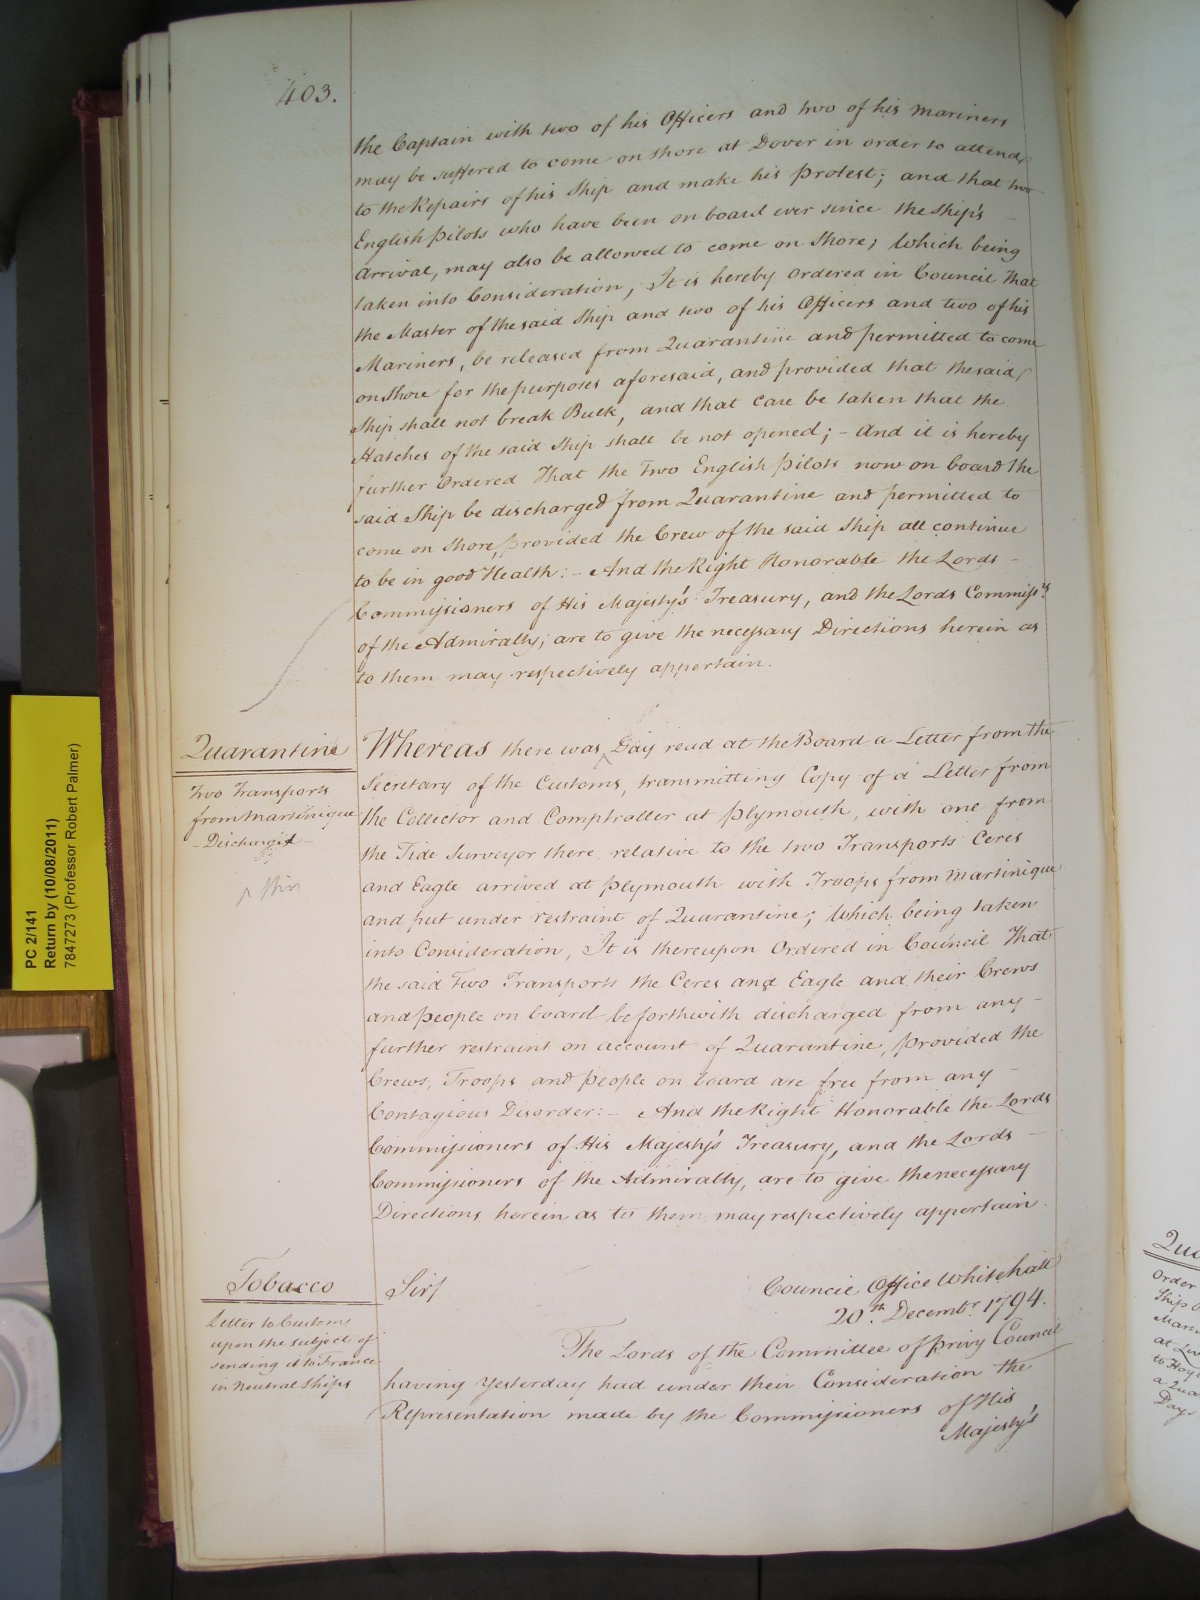 403.
the Captain with two of his Officers and two of his Mariners
may be suffered to come on Shore at Dover in order to attend
to the Repairs of his Ship and make his Protest; and that two
English Pilots who have been on board ever since the Ship's
Arrival, may also be allowed to come on Shore; Which being
taken into Consideration, It is hereby Ordered in Council That
the Master of the said Ship and two of his Officers and two of his
Mariners, be released from Quarantine and permitted to come
on Shore for the purposes aforesaid, and provided that the said
Ship shall not break Bulk, and that Care be taken that the
Hatches of the said Ship shall be not opened; - And it is hereby
further Ordered That the Two English Pilots now on board the
said Ship be discharged from Quarantine and permitted to
come on Shore, provided the Crew of the said Ship all continue
to be in good Health: - And the Right Honorable the Lords -
Commissioners of His Majesty's Treasury, and the Lords Commissrs
of the Admiralty, are to give the necessary Directions herein as
to them may respectively appertain.
Quarantine
Two Transports
from Martinique
- Discharged -
^ this
Whereas there was ^ Day read at the Board a Letter from the
Secretary of the Customs, transmitting Copy of a Letter from
the Collector and Comptroller at Plymouth, with one from
the Tide Surveyor there relative to the two Transports Ceres
and Eagle arrived at Plymouth with Troops from Martinique
and put under restraint of Quarantine; Which being taken
into Consideration, It is thereupon Ordered in Council That
the said Two Transports the Ceres and Eagle and their Crews
and People on board be forthwith discharged from any -
further restraint on account of Quarantine, provided the
Crews, Troops and People on board are free from any -
Contagious Disorder: - And the Right Honorable the Lords
Commissioners of His Majesty's Treasury, and the Lords -
Commissioners of the Admiralty, are to give the necessary
Directions herein as to them may respectively appertain.
Tobacco
Letter to Customs
upon the subject of
sending it to France
in Neutral Ships
Sir/
Council Office Whitehall
20th. Decembr. 1794.
The Lords of the Committee of Privy Council
having Yesterday had under their Consideration the
Representation made by the Commissioners of His
Majesty's
PC 2/141
Return by (10/08/2011)
7847273 (Professor Robert Palmer)
Order
Ship
at
to
Days